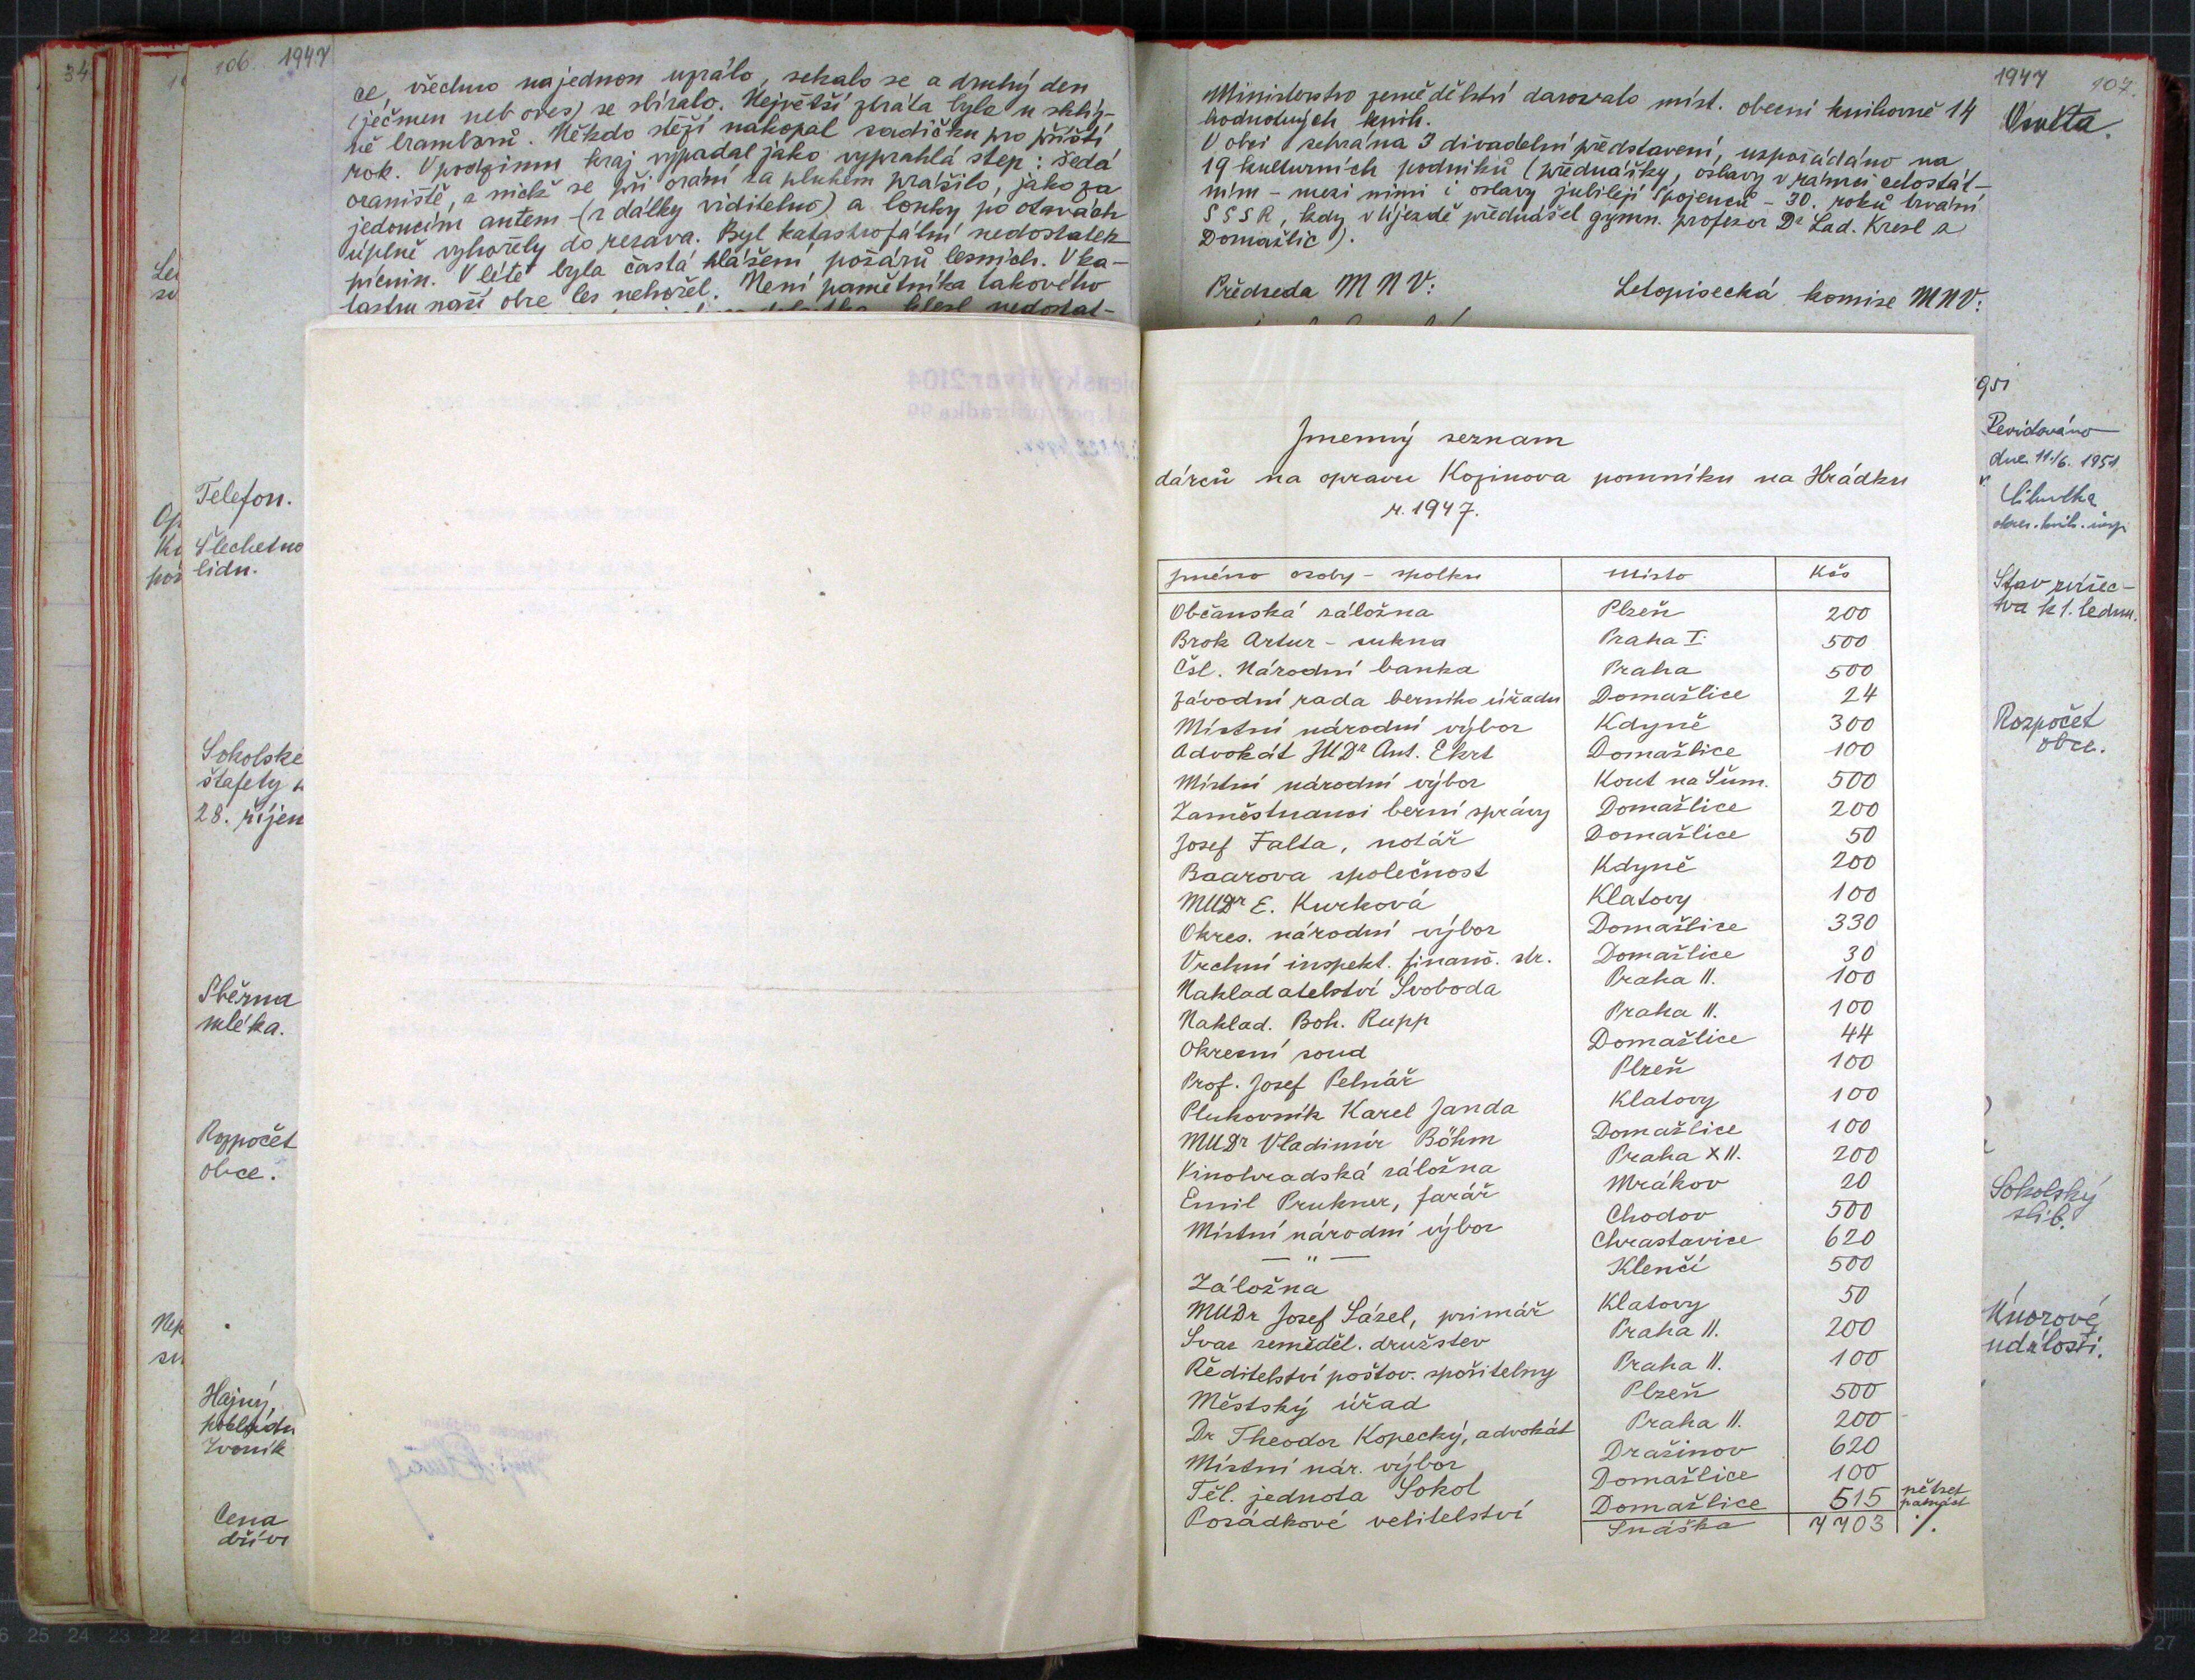 34
106. 1947
ce, všechno najednou uzrálo, sekalo se a druhý den
(ječmen neb oves) se sbíralo. Největší ztráta byla u skliz-
ně brambor. Někdo stěží nakopal sadičku pro příští
rok. V podzimu kraj vypadal jako vyprahlá step: šedá
oraniště, z nichž se při orání za pluhem prášilo, jako za
jedoucím autem - (z dálky viditelno) a louky po otavách
úplně vyhořely do rezava. Byl katastrofální nedostatek
pícnin. V létě byla častá hlášení požárů lesních. V ka-
tastru naší obce les nehořel. Není pamětníka takového
klesl nedostat-
Telefon.
Šlechetno
lidu.
Sokolské
štafety
28. říjen
Sběrna
mléka.
Rozpočet
obce.
Hajný,
Zvoník
Cena
dříví
1947 107.
Ministerstvo zemědělství darovalo míst. obecní knihovně 14
hodnotných knih.
Osvěta.
V obci sehrána 3 divadelní představení, uspořádáno na
19 kulturních podniků (přednášky, oslavy v rámci celostát-
ním - mezi nimi i oslavy jubilejí Spojenců - 30. roků trvání
SSSR, kdy v Újezdě přednášel gymn. profesor Dr Lad. Kresl z
Domažlic).
Předseda MNV:
Letopisecká komise MNV:
Jmenný seznam
dárců na opravu Kozinova pomníku na Hrádku
r. 1947.
Jméno osoby - spolku Místo Kčs
Občanská záložna Plzeň 200
Brok Artur - sukna Praha I. 500
Čsl. Národní banka Praha 500
Závodní rada berního úřadu Domažlice 24
Místní národní výbor Kdyně 300
Advokát JUDr Ant. Ekrt Domažlice 100
Místní národní výbor Kout na Šum. 500
Zaměstnanci berní správy Domažlice 200
Josef Falta, notář Domažlice 50
Baarova společnost Kdyně 200
MUDr E. Kurková Klatovy 100
Okres. národní výbor Domažlice 330
Vrchní inspekt. finanč. str. Domažlice 30
Nakladatelství Svoboda Praha II. 100
Naklad. Boh. Rupp Praha II. 100
Okresní soud Domažlice 44
Prof. Josef Pelnář Plzeň 100
Plukovník Karel Janda Klatovy 100
MUDr Vladimír Böhm Domažlice 100
Vinohradská záložna Praha XII. 200
Emil Prukner, farář Mrákov 20
Místní národní výbor Chodov 500
— " — Chrastavice 620
Záložna Klenčí 500
MUDr Josef Sázel, primář Klatovy 50
Svaz zeměděl. družstev Praha II. 200
Ředitelství poštov. spořitelny Praha II. 100
Městský úřad Plzeň 500
Dr Theodor Kopecký, advokát Praha II. 200
Místní nár. výbor Dražinov 620
Těl. jednota Sokol Domažlice 100
Posádkové velitelství Domažlice 515 pětset patnáct
Snáška 7703 ./.
Revidováno
dne 11./6. 1951.
Stav zvířec-
tva k 1. lednu.
Rozpočet
obce.
Sokolský
slib.
Únorové
události.